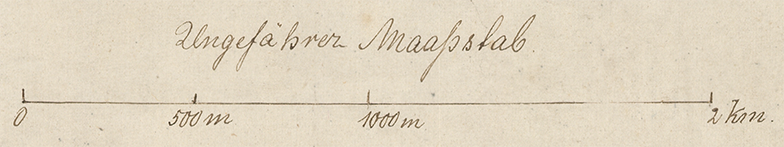 Ungefährer Maaßstab.
0 500 m 1000 m 2 km.